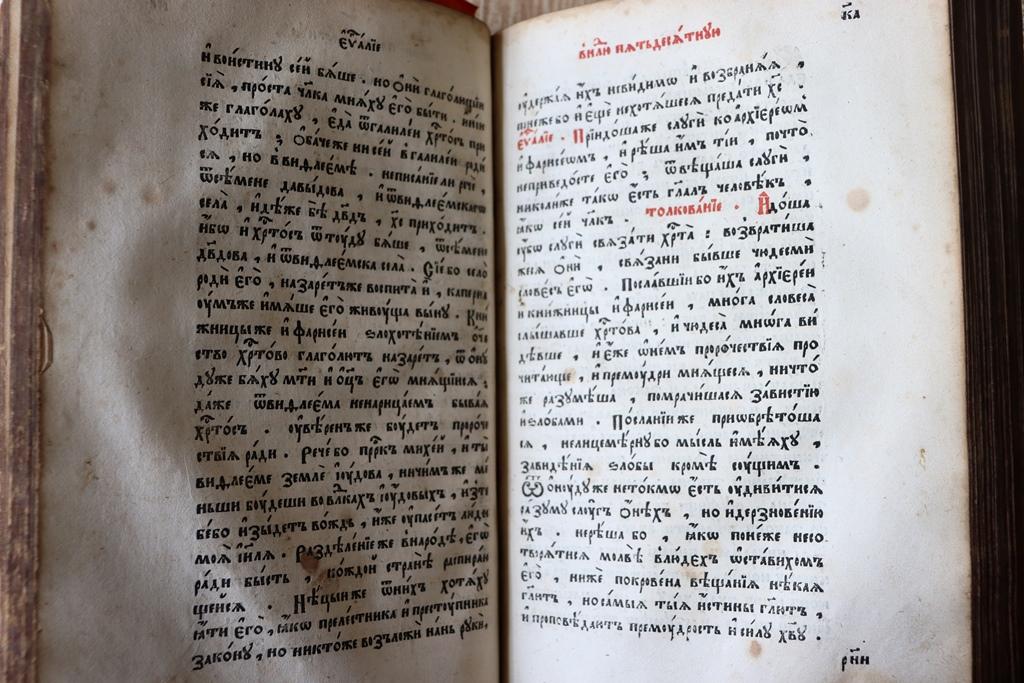 є҆ѵⷢ҇алїе
и҆ воистину се́й бѧ́ше . но ѻ҆ни́ глаго́лющїи
сїѧ̀ , про́ста чл҃ка мнѧ́ху є҆го̀ бы́ти . и҆ні́и
же глаго́лаху , є҆да̀ ѿгалиле́и хрⷭ҇то́съ при
хо́дитъ ; ѻ҆ба́чеже ни се́й в галиле́и роди́
сѧ , но в виѳлее́мѣ . неписа́нїе ли речѐ ,
ѿсѣ́мене давы́дова , и҆ ѿвиѳлее́мскагѡ
села̀ , и҆дѣ́же бѣ̀ дв҃дъ , хс҃ прихо́дитъ .
и҆́бѡ и҆ хрⷭ҇то́съ ѿту́ду бѧ́ше , ѿсѣ́мене
дв҃дова , и҆ ѿвиѳлее́мска села̀ . Сїе́ бо село̀
родѝ є҆го̀ , назаре́тъже воспита̀ и҆̀ , каперна
оу́мъже и҆мѧ́ше є҆го̀ живоу́ща вы́ну . Кни́
жницы же и҆ фарисе́и ѕлохотѣ́нїемъ ѻ҆те́че
ство хрⷭ҇то́во глаго́лютъ назаре́тъ , ѿѻ҆ню́
ду́же бѧ́ху мт҃и и҆ ѻ҆ц҃ъ є҆гѡ̀ мнѧ́щїисѧ ,
да́же ѿвиѳлее́ма ненарица́емъ быва́ѧ
хрⷭ҇то́съ . оу҆вѣ́ренъже боу́детъ проро́че
ствїѧ ра́ди . Рече́ бо прⷪ҇ркъ михе́й , и҆ ты̀
виѳлее́ме землѐ і҆ю́дова , ничи́мъже ме́
ньши боу́деши во влⷣкахъ і҆ю́довыхъ , и҆зте
бе́бо и҆зы́детъ во́ждь , и҆́же оу҆пасе́тъ лю́ди
моѧ̀ і҆и҃лѧ . Раздѣле́нїеже в наро́дѣ , є҆гѡ̀
ра́ди бы́сть , ко́ждой странѣ̀ распира́ю
щейсѧ . Нѣ́цыиже ѿни́хъ хотѧ́ху
ꙗ҆́ти є҆го̀ , ꙗ҆́кѡ преле́стника и҆ престоу́пника
зако́ну , но никто́же возложѝ на́нь ру́ки ,
внⷣлю пѧтьдесѧ́тную
к҃а
оу҆держа́ѧ и҆́хъ неви́димѡ и҆ возбранѧ́ѧ ,
поне́же бо и҆ є҆щѐ нехотѧ́шесѧ преда́ти хс҃ .
є҆ѵⷢ҇алїе . Прїидо́шаже слуги̑ ко а҆рхїере́ѡм
и҆ фарисе́ѡмъ , и҆ рѣ́ша и҆̀мъ ті́и , почто̀
неприведо́сте є҆го̀ ; ѿвѣща́ша слуги̑ ,
николи́же та́кѡ є҆́сть гл҃алъ человѣ́къ ,
ꙗ҆́кѡ се́й чл҃къ . толкова́нїе . И҆до́ша
оу҆́бѡ слуги̑ свѧза́ти хрⷭ҇та̀ : возврати́ша
жесѧ ѻ҆нѝ , свѧ́зани бы́вше чудесмѝ
слове́съ є҆гѡ̀ . Посла́вшїи бо и҆́хъ а҆рхїере́и
и҆ кни́жницы и҆ фарисе́и , мно́га словеса̀
слы́шавше хрⷭ҇то́ва , и҆ чюдеса̀ мнѡ́га ви́
дѣвше , и҆ є҆́же ѡ҆не́мъ проро́чествїѧ про
чита́юще , и҆ прему́дри мнѧ́щесѧ , ничто́
же разумѣ́ша , помрачи́шасѧ за́вистїю
и҆ ѕло́бами . По́сланїи же приѡбрѣто́ша
сѧ , нелицемѣ́рну бо мы́сль и҆мѣ́ѧху ,
зави́дѣнїѧ ѕло́бы кромѣ̀ соу́щимъ .
Ѿѻ҆ню́ду же нето́кмѡ є҆́сть оу҆диви́тисѧ
ра́зуму слу́гъ ѻ҆нѣ́хъ , но и҆ дерзнове́нїю
и҆́хъ . нерѣ́ша бо , ꙗ҆́кѡ поне́же несо
творѧ́тисѧ молвѣ̀ в лю́дехъ ѡ҆ста́вихом
є҆го̀ , нижѐ покрове́на вѣща́нїѧ нѣ́каѧ
гл҃ютъ , но са́мыѧ тыѧ̀ и҆́стины гл҃ютъ ,
и҆ проповѣ́даютъ прему́дрость и҆ си́лу хв҃у .
рни